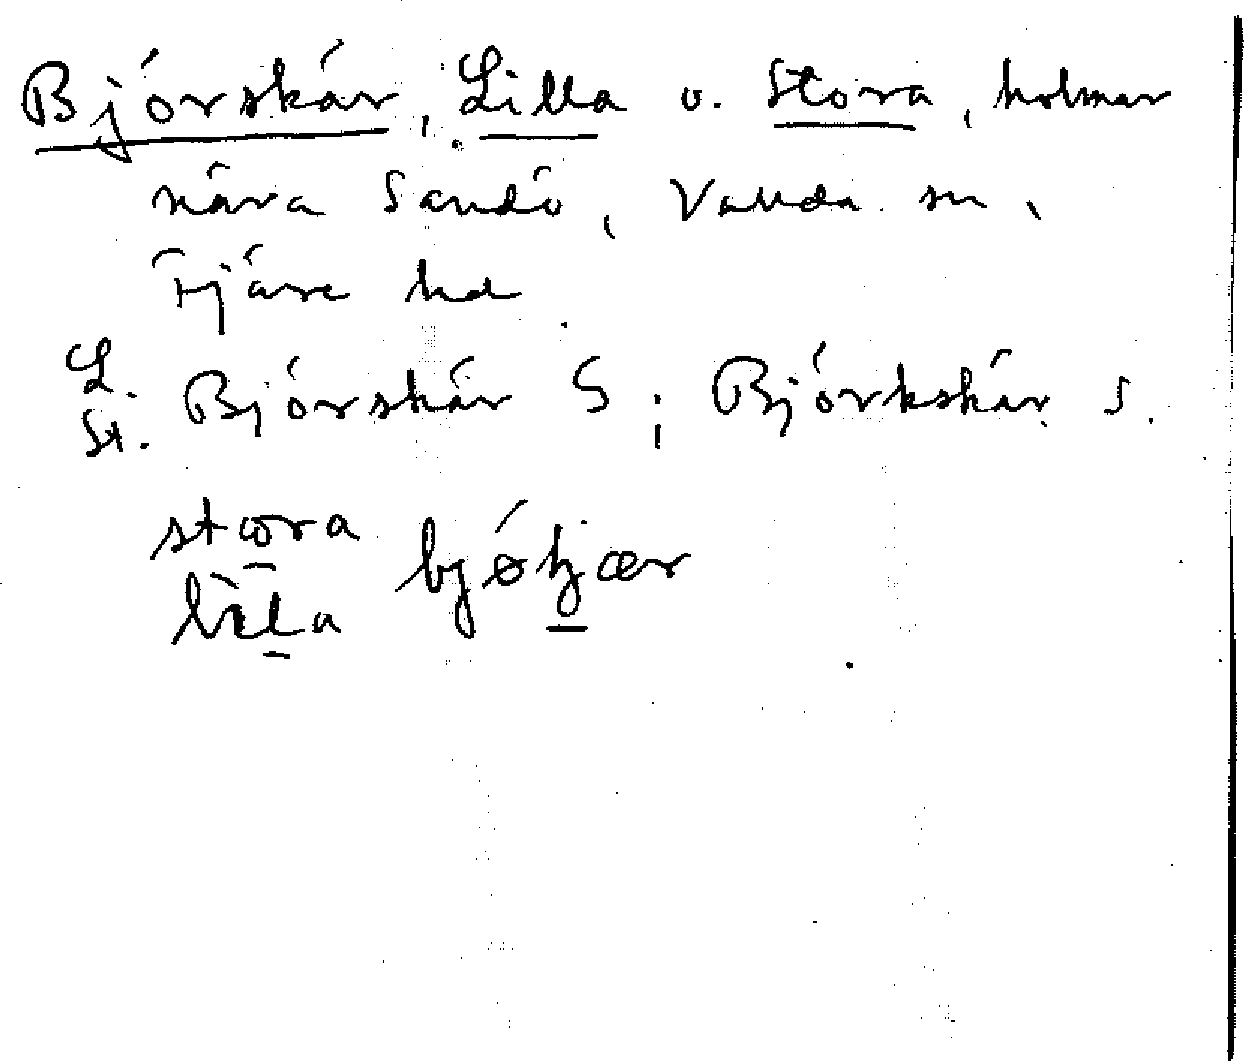 Björskär, Lilla o. Stora, holmar
nära Sandö, Vallda sn,
Fjäre hd.
L. St. Björskär S; Björkskär s.
stora
lila bjöʃær